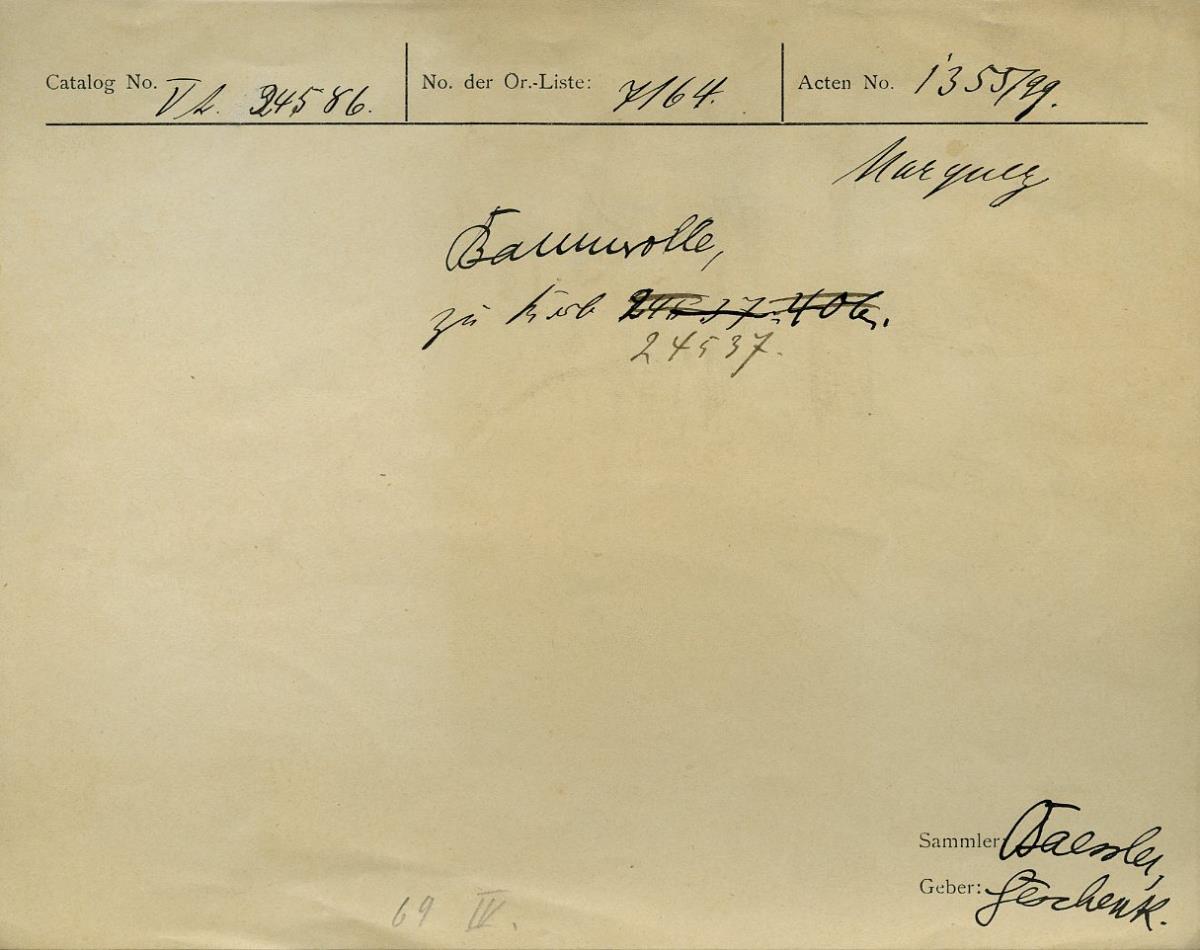 Catalog No. VA. 24586. No. der Or.-Liste: 7164. Acten No. 1355/99.
Marquez
Baumwolle,
zu Korb
24537.
Sammler: Baessler,
Geber: Geschenk.
69 IV.